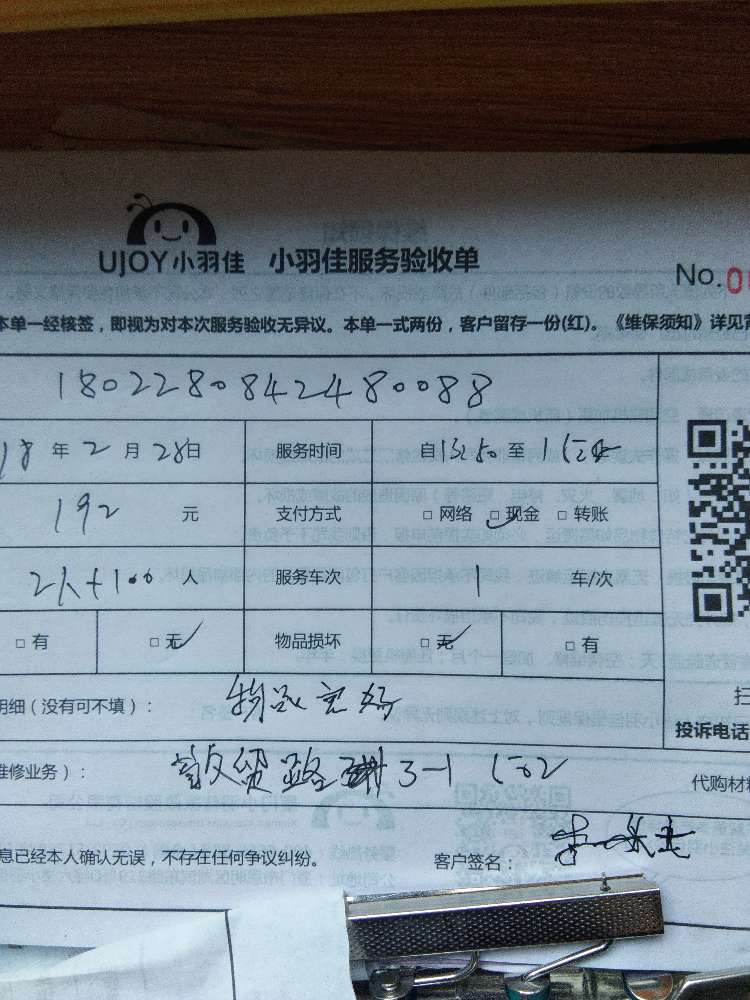 UJOY小羽佳 小羽佳服务验收单
No.0
本单一经核签，即视为对本次服务验收无异议。本单一式两份，客户留存一份(红)。《维保须知》详见
18022808424480088
18年2月28日 服务时间 自 至
192 元 支付方式 □网络 □现金 □转账
人 服务车次 1 车/次
□有 □无 物品损坏 □无 □有
明细（没有可不填）： 物品完好
扫
投诉电话
维修业务）： 路 3-1 1502
代购材料
息已经本人确认无误，不存在任何争议纠纷。 客户签名：